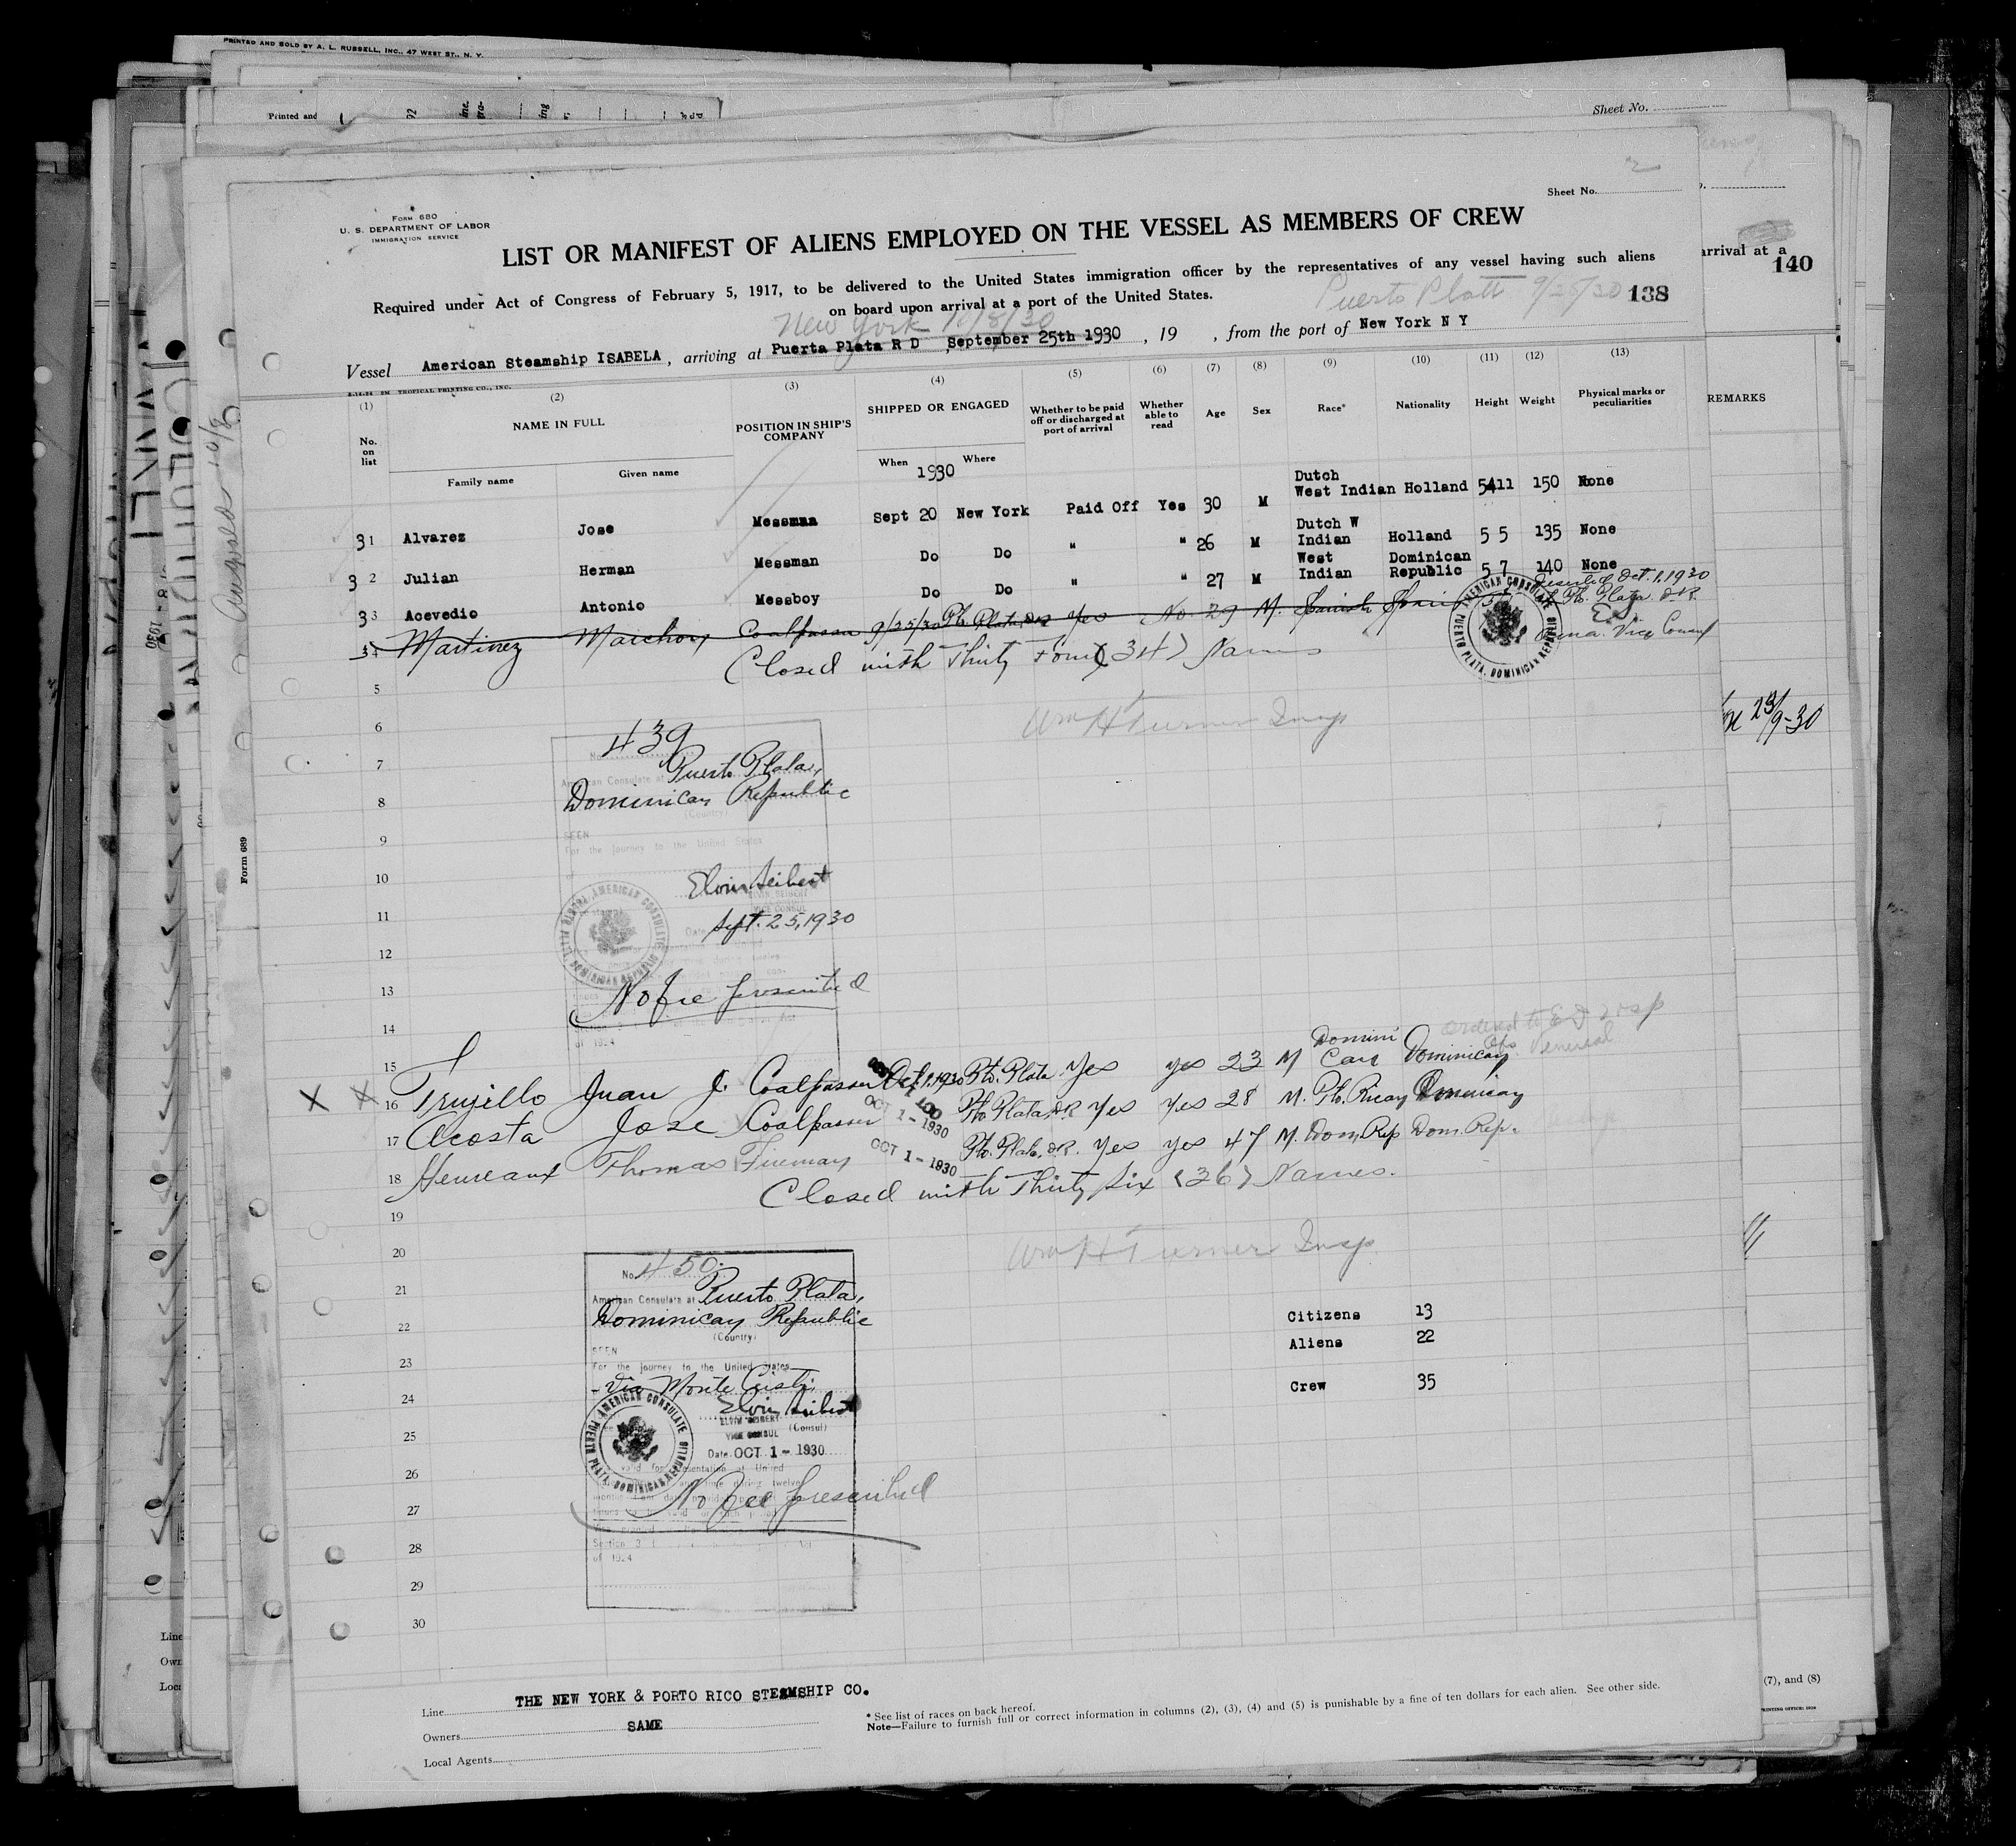 PRINTED AND SOLD BY A. L. RUSSELL, INC., 47 WEST ST., N. Y.
Printed and
Sheet No.
Sheet No. 2
FORM 680
U. S. DEPARTMENT OF LABOR
IMMIGRATION SERVICE
LIST OR MANIFEST OF ALIENS EMPLOYED ON THE VESSEL AS MEMBERS OF CREW
arrival at a
140
Required under Act of Congress of February 5, 1917, to be delivered to the United States immigration officer by the representatives of any vessel having such aliens
on board upon arrival at a port of the United States.
Puerto Platt 9/25/30 138
New York 10/8/30
Vessel American Steamship ISABELA, arriving at Puerta Plata R D, September 25th 1930, 19 , from the port of New York N Y
TROPICAL PRINTING CO., INC.
(1) (2) (3) (4) (5) (6) (7) (8) (9) (10) (11) (12) (13)
No. on list
NAME IN FULL
Family name Given name
POSITION IN SHIP'S COMPANY
SHIPPED OR ENGAGED
When 1930 Where
Whether to be paid off or discharged at port of arrival
Whether able to read
Age Sex Race* Nationality Height Weight
Physical marks or peculiarities
REMARKS
31 Alvarez Jose Messman Sept 20 New York Paid Off Yes 30 M Dutch West Indian Holland 5411 150 None
3 2 Julian Herman Messman Do Do " " 26 M Dutch W Indian Holland 5 5 135 None
33 Acevedio Antonio Messboy Do Do " " 27 M West Indian Dominican Republic 5 7 140 None
34 Martinez Coalpasser 9/25/30 Pto. Plata, DR Yes No. 29 M. Spanish Spain
Oct. 1, 1930
Pto. Plata. D.R.
E.S.
Vice Consul
AMERICAN CONSULATE PUERTO PLATA, DOMINICAN REPUBLIC
Closed with Thirty Four (34) Names
5
6
Wm H Turner Insp
23/9-30
7
8
9
10
11
12
13
14
No. 439
American Consulate at Puerto Plata,
Dominican Republic
(Country)
SEEN
For the journey to the United States
Elvin Seibert
ELVIN SEIBERT
VICE CONSUL
Date Sept. 25, 1930
AMERICAN CONSULATE PUERTO PLATA, DOMINICAN REPUBLIC
No fee presented
of 1924
15
ordered to
Venereal
X X 16 Trujillo Juan J. Coalpasser Oct 1, 1930 Pto. Plata Yes yes 23 M Dominican Dominican
17 Acosta Jose Coalpasser OCT 1 - 1930 Pto. Plata, D.R. Yes Yes 28 M. Pto. Rican Dominican
18 Heureaux Thomas Fireman OCT 1 - 1930 Pto. Plata, D.R. Yes Yes 47 M. Dom. Rep Dom. Rep.
Closed with Thirty Six (36) Names.
19
20
Wm H Turner Insp.
21
22
23
24
25
26
27
28
29
30
No. 450
American Consulate at Puerto Plata,
Dominican Republic
(Country)
SEEN
For the journey to the United States
- Via Monte Cristi
Elvin Seibert
ELVIN SEIBERT
VICE CONSUL (Consul)
Date OCT 1 - 1930
AMERICAN CONSULATE PUERTO PLATA, DOMINICAN REPUBLIC
No fee presented
Section 3
of 1924
Citizens 13
Aliens 22
Crew 35
Form 689
Line THE NEW YORK & PORTO RICO STEAMSHIP CO.
Owners SAME
Local Agents
* See list of races on back hereof.
Note—Failure to furnish full or correct information in columns (2), (3), (4) and (5) is punishable by a fine of ten dollars for each alien. See other side.
(7), and (8)